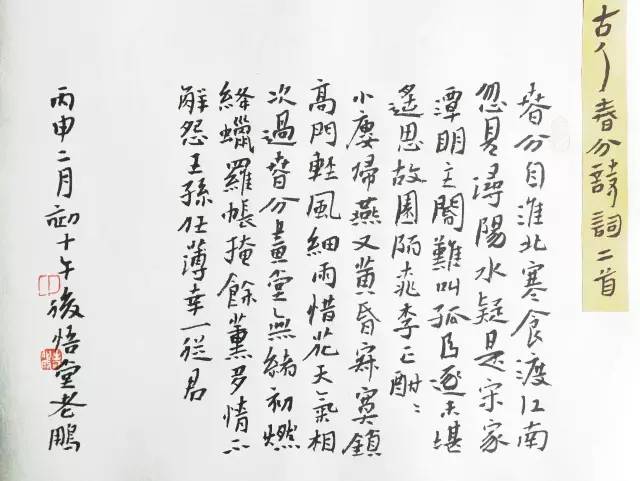 古人春分詩詞二首
春分自淮北寒食渡江南
忽見潯陽水疑是宋家
潭明主閽難叫孤臣逐未堪
遙思故園陌桃李正酣:
小廔歸燕又黃昏寂寞鎖
高門輕風細雨惜花天氣相
次過春分畫堂無緒初燃
絳蠟羅帳掩餘薰多情不
解怨王孫任薄幸一從君
丙申二月初十午後悟堂老鵬